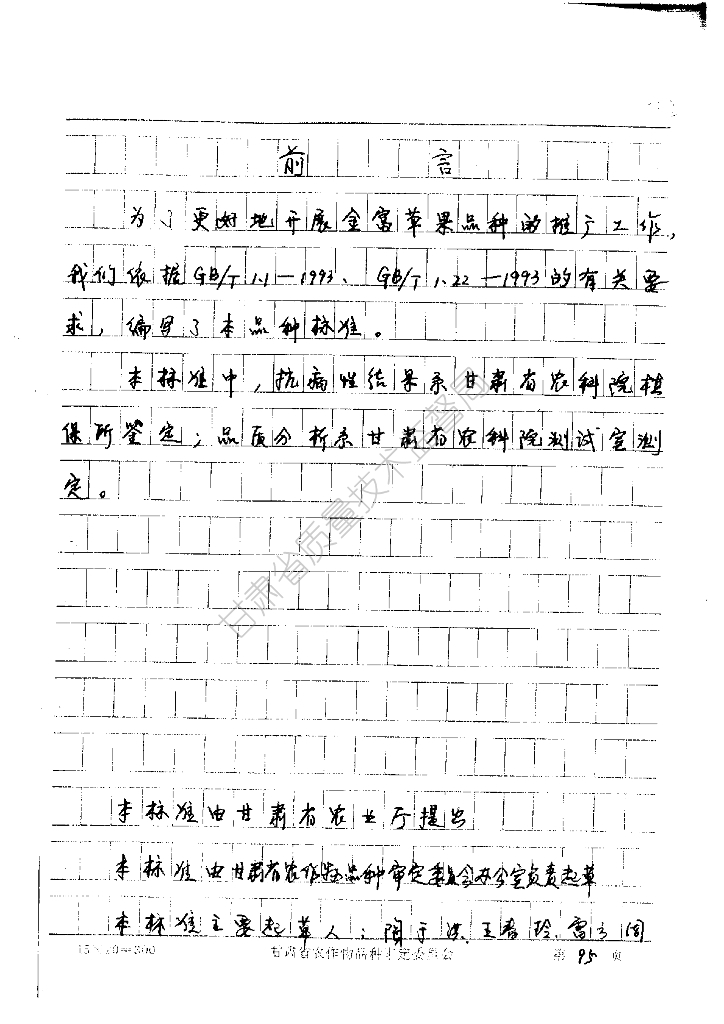 前言
为了更好地开展金富苹果品种的推广工作,
我们依据GB/T 1.1—1993、GB/T 1.22—1993的有关要
求,编写了本品种标准。
本标准中,抗病性结果系甘肃省农科院植
保所鉴定;品质分析系甘肃省农科院测试室测
定。
甘肃省质量技术监督局
本标准由甘肃省农业厅提出
本标准由甘肃省农作物品种审定委员会办公室负责起草
本标准主要起草人:陶 王春玲、雷
15×20=300 甘肃省农作物品种审定委员会 第 95 页